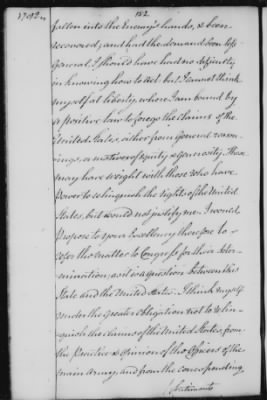 152
fallen into the Enemy's hands, & been
recovered; and had the demand been less
general, I should have had no difficulty
in knowing how to act but I cannot think
myself at liberty, where I am bound by
a positive law to forego the claims of the
United States, either from General reason-
ings, or motives of equity & generosity. These
may have weight with those who have
power to relinquish the rights of the United
States, but would not justify me. I would
propose to your Excellency therefore to re-
fer the matter to Congress for their deter-
mination, as it is a question between this
State and the United States. I think myself
under the greater obligation not to relin-
quish the claims of the United States, from
the Practice & Opinion of the Officers of the
main Army, and from the corresponding
Sentiments